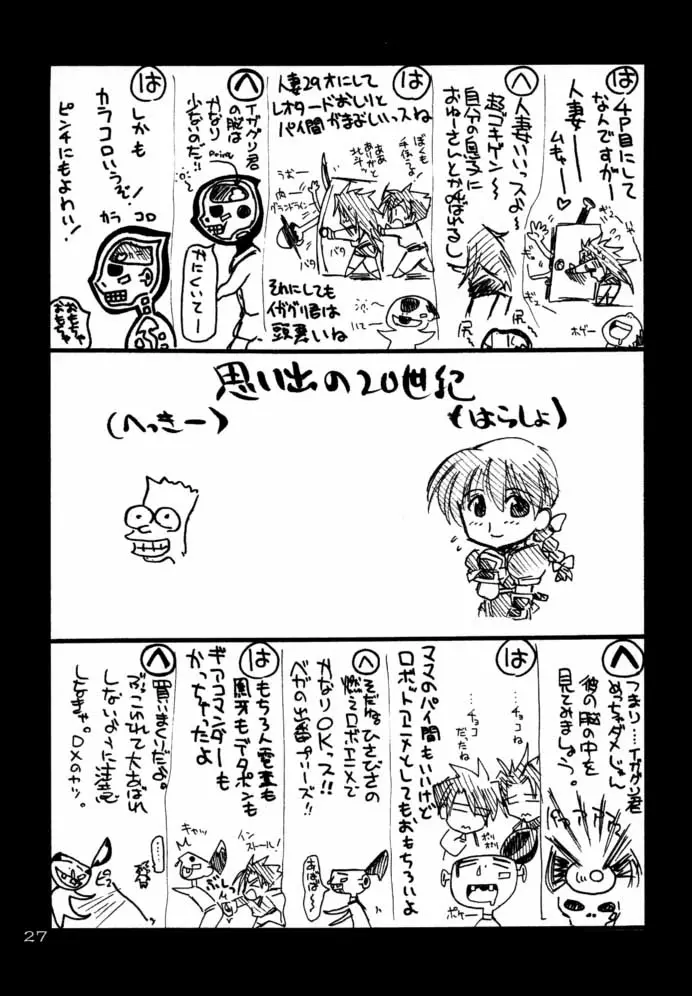 は
4P目にして
なんですがー
人妻ーー
ムキャー♡
へ
人妻いいっスよ〜
超ゴキゲン〜
自分の息子に
おゅーさんとか呼ばれるし
尻〜
尻〜
ホゲー
は
人妻29才にして
レオタードおしりと
パイ間がまぶしいっスね
ぼくも
手伝うよ!
ああ
ありがと
北斗…
うおー
肉ー
グランドライン
バタ
バタ
それにしても
イガグリ君は
頭悪いね
へ
イガグリ君
の脳は
かなり
少ないのだ!!
かにくいてー
は
しかも
カラコロいうぞ!
カラ コロ
ピンチにもよわい!
おもちゃ
おもちゃ
思い出の20世紀
(はらしょ)
(へっきー)
へ
つまり…イガグリ君
めっちゃダメじゃん
彼の脳の中を
見てみましょう。
は
ママのパイ間もいいけど
ロボットアニメとしてもおもちろいよ
…チョコね
…チョコ
だったね
ポリ
ポリ
ポケー
へ
そだねひさびさの
燃えロボアニメで
かなりOKっス!!
ベガの出番プリーズ!!
あばば〜
は
もちろん電童も
凰牙もデータポンも
ギアコマンダーも
かっちゃったよ
キャッ
インストール!
へ
買いまくりだよ。
ぶっこわれて大あばれ
しないように注意
しなきゃ。DXのヤツ。
27